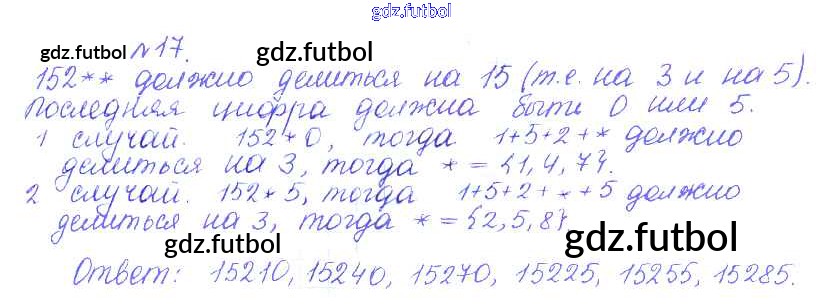 gdz.futbol
gdz.futbol №17. gdz.futbol
152** должно делиться на 15 (т.е. на 3 и на 5).
Последняя цифра должна быть 0 или 5.
1 случай. 152*0, тогда 1+5+2+* должно
делиться на 3, тогда * = {1,4,7}.
2 случай. 152*5, тогда 1+5+2+*+5 должно
делиться на 3, тогда * = {2,5,8}
gdz.futbol gdz.futbol
Ответ: 15210, 15240, 15270, 15225, 15255, 15285.